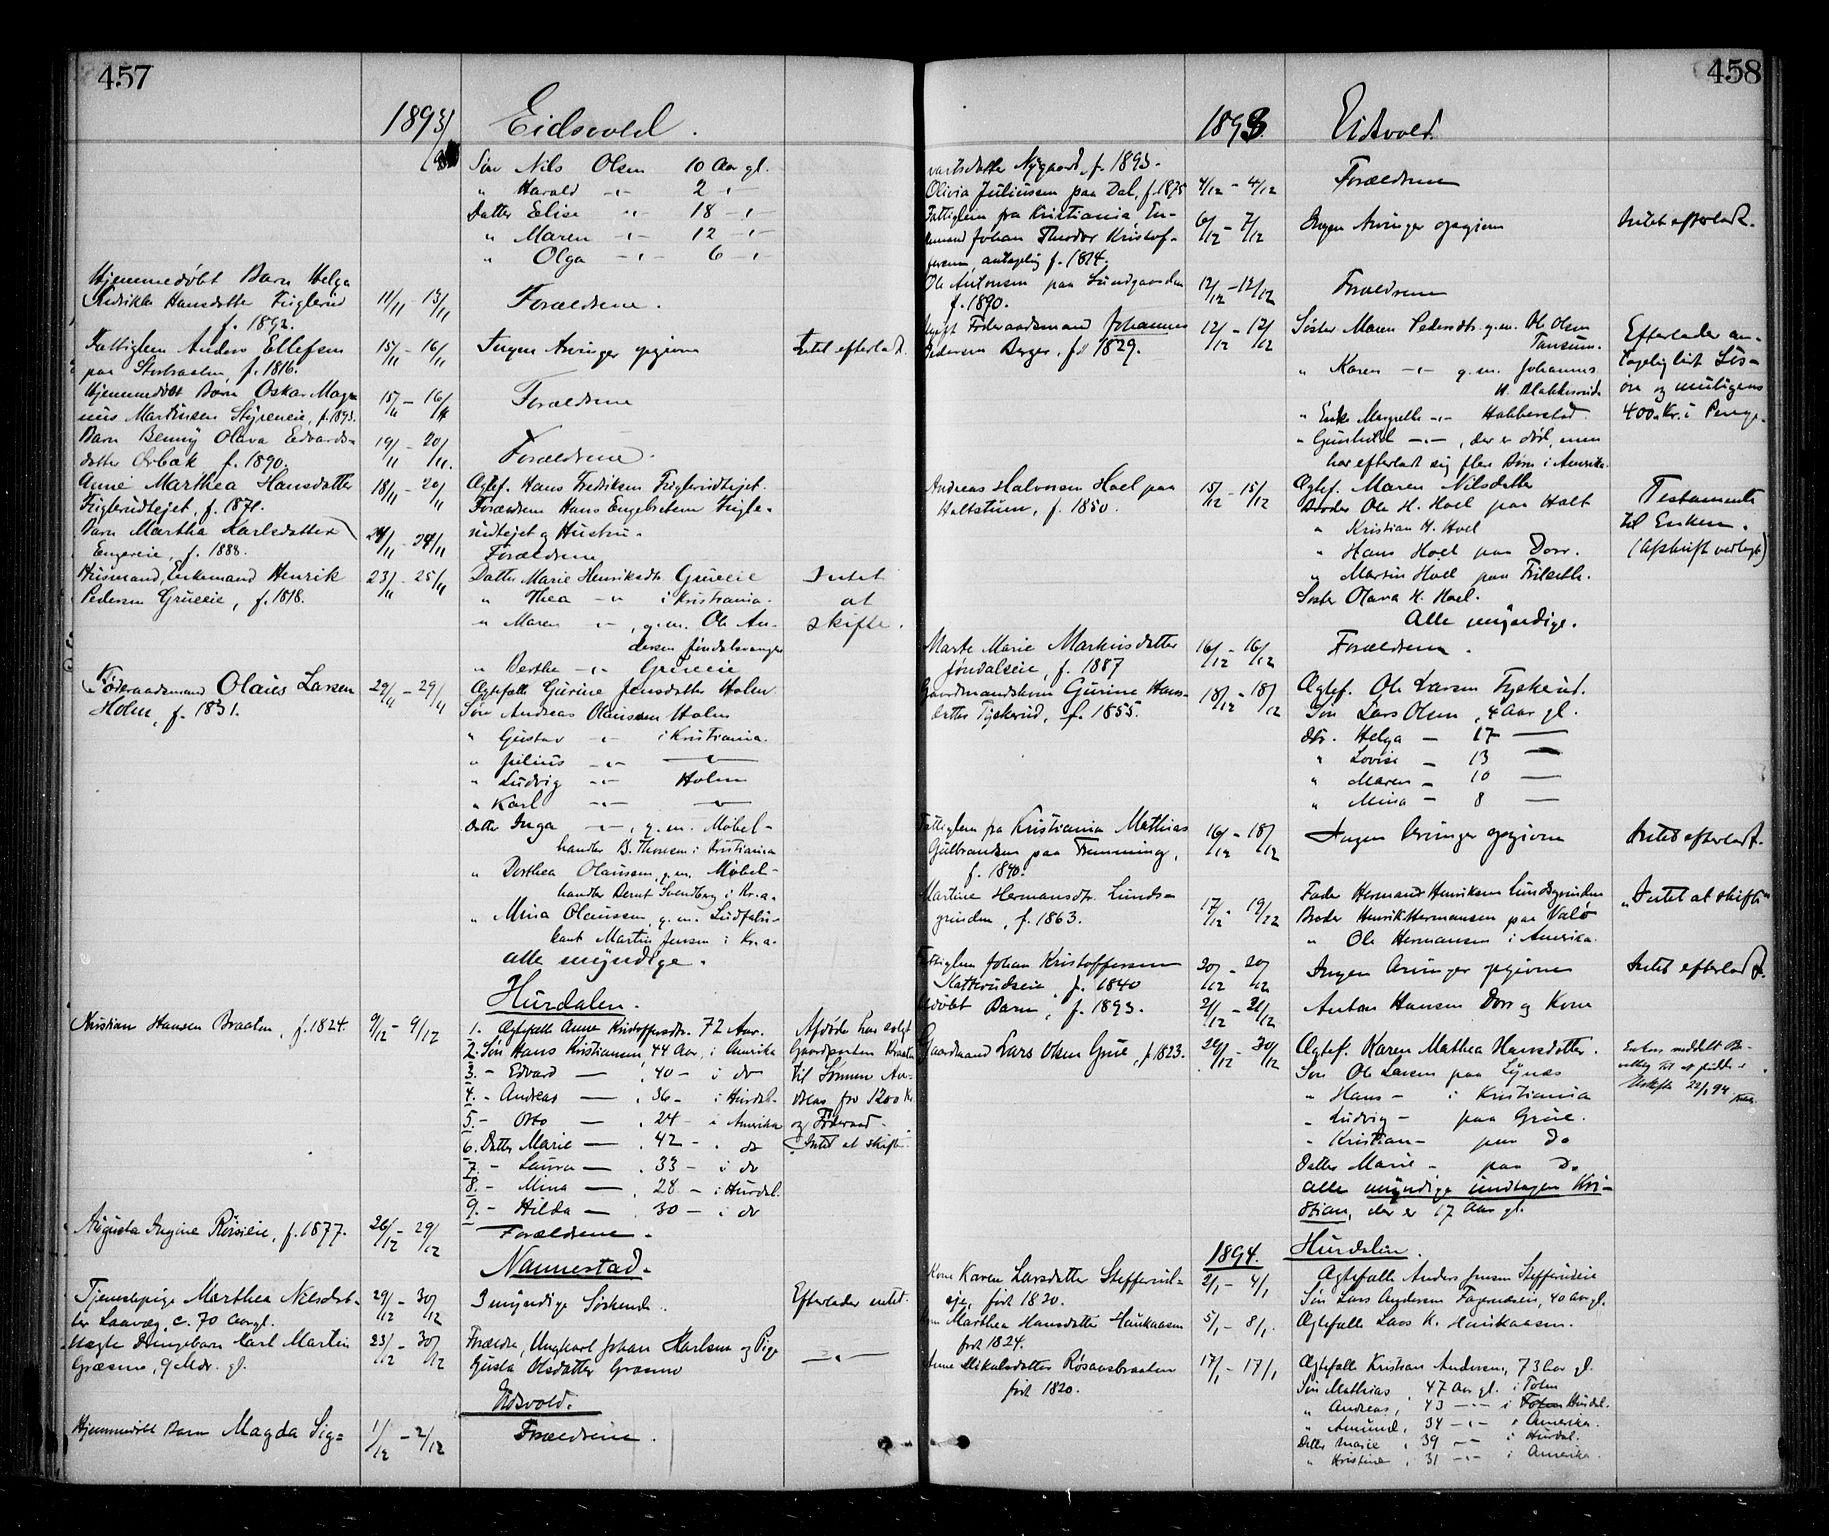 457
1893 Eidsvold.
Søn Nils Olsen 10 Aar gl.
" Harald -"- 2 -"-
Datter Elise -"- 18 -"-
" Maren -"- 12 -"-
" Olga -"- 6 -"-
Hjemmedøbt Barn Helga
Fredrikke Hansdatter Fuglerud 11/11 - 13/11 Forældrene.
f. 1892.
Fattiglem Anders Ellefsen 15/11 - 16/11 Ingen Arvinger opgivne Intet efterladt.
paa Storbraaten, f. 1816.
Hjemmedøbt Barn Oskar Mag-
nus Martinsen Styreneie, f. 1893. 15/11 - 16/11 Forældrene
Barn Benny Olava Edvards-
datter Ørbæk f. 1890. 19/11 - 20/11. Forældrene.
Anne Marthea Hansdatter 18/11 - 20/11 Ægtef. Hans Fredriksen Fuglerudtejet.
Fuglerudtejet, f. 1871. Forældrene Hans Engebretsen Fugle-
rudtejet og Hustru.
Barn Martha Karlsdatter 24/11 - 24/11 Forældrene
Engereie, f. 1888.
Husmand, Enkemand Henrik 23/11 - 25/11 Datter Marie Henriksdtr. Grueeie Intet
Pedersen Grueeie, f. 1818. " Thea -"- i Kristiania. at
" Maren -"-, g.m. Ole An- skifte.
dersen Jøndalsvangen
" Berthe -"- Grueeie
Føderaadsmand Olaus Larsen 29/11 - 29/11 Ægtefælle Gurine Jensdatter Holm
Holm, f. 1831. Søn Andreas Olaussen Holm
" Gustav -"- i Kristiania.
" Julius -"- -"-
" Ludvig -"- Holm
" Karl -"- -"-
Datter Inga -"-, g.m. Møbel-
handler B. Thoresen i Kristiania
" Dorthea Olaussen, g.m. Møbel-
handler Bernt Svendberg i Kr.a.
" Mina Olaussen, g.m. Ludfabri-
kant Martin Jensen i Kr.a.
alle myndige.
Hurdalen.
Kristian Hansen Braaten, f. 1824. 9/12 - 9/12 1. Ægtefælle Anne Kristoffersdtr. 72 Aar. Afdøde har solgt
2. Søn Hans Kristiansen, 44 Aar, i Amerika Gaardparten Braaten
3. - Edvard — , 40 - i do til Sønnen An-
4. - Andreas — , 36 - i Hurdal. dreas for 1200 Kr.
5. - Otto — , 24 - i Amerika og Føderaad.
6. Datter Marie — , 42 - . do Intet at skifte.
7. - Laura — , 33 - i do
8. - Mina — , 28 - i Hurdal.
9. - Hilda — , 30 - i do
Augusta Ingine Røiseeie, f. 1877. 26/12 - 29/12 Forældrene.
Nannestad.
Tjenestepige Marthea Nilsdat- 29/12 - 30/12 3 myndige Søskende. Efterlader intet.
ter Laavæg, c. 70 Aar gl.
Uægte Drengebarn Karl Martin 23/12 - 30/12 Forældre, Ungkarl Johan Karlsen og Pige -"-
Græsmo, 9 Mdr. gl. Gusta Olsdatter Græsmo
Eidsvold.
Hjemmedøbt Barn Magda Sig- 1/12 - 2/12 Forældrene.
458
1893. Eidsvold.
vartsdatter Nygaard, f. 1893. Forældrene
Olivia Juliussen paa Dal, f. 1875 4/12 - 4/12
Fattiglem fra Kristiania, En- 6/12 - 7/12 Ingen Arvinger opgivne Intet efterladt.
kemand Johan Theodor Kristof-
fersen, antagelig f. 1814.
Ole Antonsen paa Lundgaarden 12/12 - 12/12 Forældrene
f. 1890.
Ugift Føderaadsmand Johannes 12/12 - 12/12 Søster Maren Pedersdtr. g.m. Ole Olsen Efterlader an-
Pedersen Berger, f. 1829. Tansum. tagelig lidt Løs-
" Karen -"- g.m. Johannes øre og muligens
H. Blakkesrud. 400 Kr. i Penge.
" Enke Margrethe -"- Habberstad
" Gunhild -"-, der er død, men
har efterladt sig flere Børn i Amerika.
Andreas Halvorsen Hoel paa 15/12 - 15/12 Ægtef. Maren Nilsdatter Testamente
Holtstuen, f. 1850. Broder Ole H. Hoel paa Holt til Enken.
" Kristian H. Hoel (Afskrift vedlagt)
" Hans Hoel paa Dorr.
" Martin Hoel paa Frilseth.
Søster Olava H. Hoel.
Alle myndige.
Marte Marie Markusdatter 16/12 - 16/12 Forældrene.
Jøndalseie, f. 1887
Gaardmandskone Gurine Hans- 18/12 - 18/12 Ægtef. Ole Larsen Tyskerud.
datter Tyskerud, f. 1855. Søn Lars Olsen, 4 Aar gl.
Dtr. Helga - 17 —
" Lovise - 13 —
" Maren - 10 —
" Mina - 8 —
Fattiglem fra Kristiania Mathias 16/12 - 18/12 Ingen Arvinger opgivne Intet efterladt.
Gulbrandsen paa Fremming,
f. 1840.
Martine Hermansdtr. Lunds- 17/12 - 19/12 Fader Herman Henriksen Lundsgrinden Intet at skifte
grinden, f. 1863. Broder Henrik Hermansen paa Valø
" Ole Hermansen i Amerika.
Fattiglem Johan Kristoffersen 20/12 - 20/12 Ingen Arvinger opgivne Intet efterladt.
Katterudseie, f. 1840
Udøbt Barn, f. 1893. 21/12 - 21/12 Anton Hansen Dorr og Kone
Gaardmand Lars Olsen Grue, f. 1823. 29/12 - 30/12 Ægtef. Karen Mathea Hansdatter. Enken meddelt Be-
Søn Ole Larsen paa Lynæs villing til at sidde i
" Hans - i Kristiania Uskifte 22/1 94.
" Ludvig - paa Grue.
" Kristian - paa Do
Datter Marie - paa Do
alle myndige undtagen Kri-
stian, der er 17 Aar gl.
1894. Hurdalen.
Kone Karen Larsdatter Stefferud- 2/1 - 4/1 Ægtefælle Anders Jensen Stefferudeie
eje, født 1820. Søn Lars Andersen Fagernæseie, 40 Aar gl.
Kone Marthea Hansdatter Haukaasen 5/1 - 8/1. Ægtefælle Lars K. Haukaasen.
født 1824.
Anne Mikalsdatter Røsaasbraaten 17/1 - 17/1 Ægtefælle Kristian Andersen, 73 Aar gl.
født 1820. Søn Mathias, 47 Aar gl. i Toten
" Andreas, 43 -"- i Toten Hurdal.
" Amund, 34 -"- i Amerika.
Datter Marie, 39 -"- i Hurdal.
" Kristine, 31 -"- i Amerika.